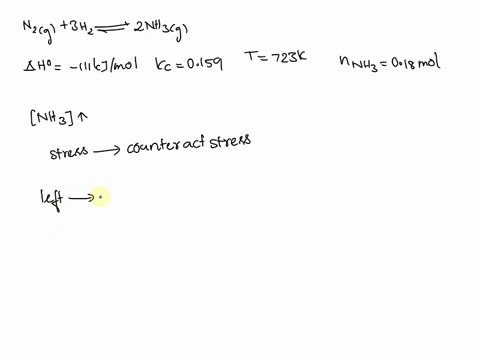 N2(g) + 3H2 ⇌ 2NH3(g)
ΔH° = -111kJ/mol Kc = 0.159 T = 723K nNH3 = 0.18mol
[NH3] ↑
stress → counteract stress
left →